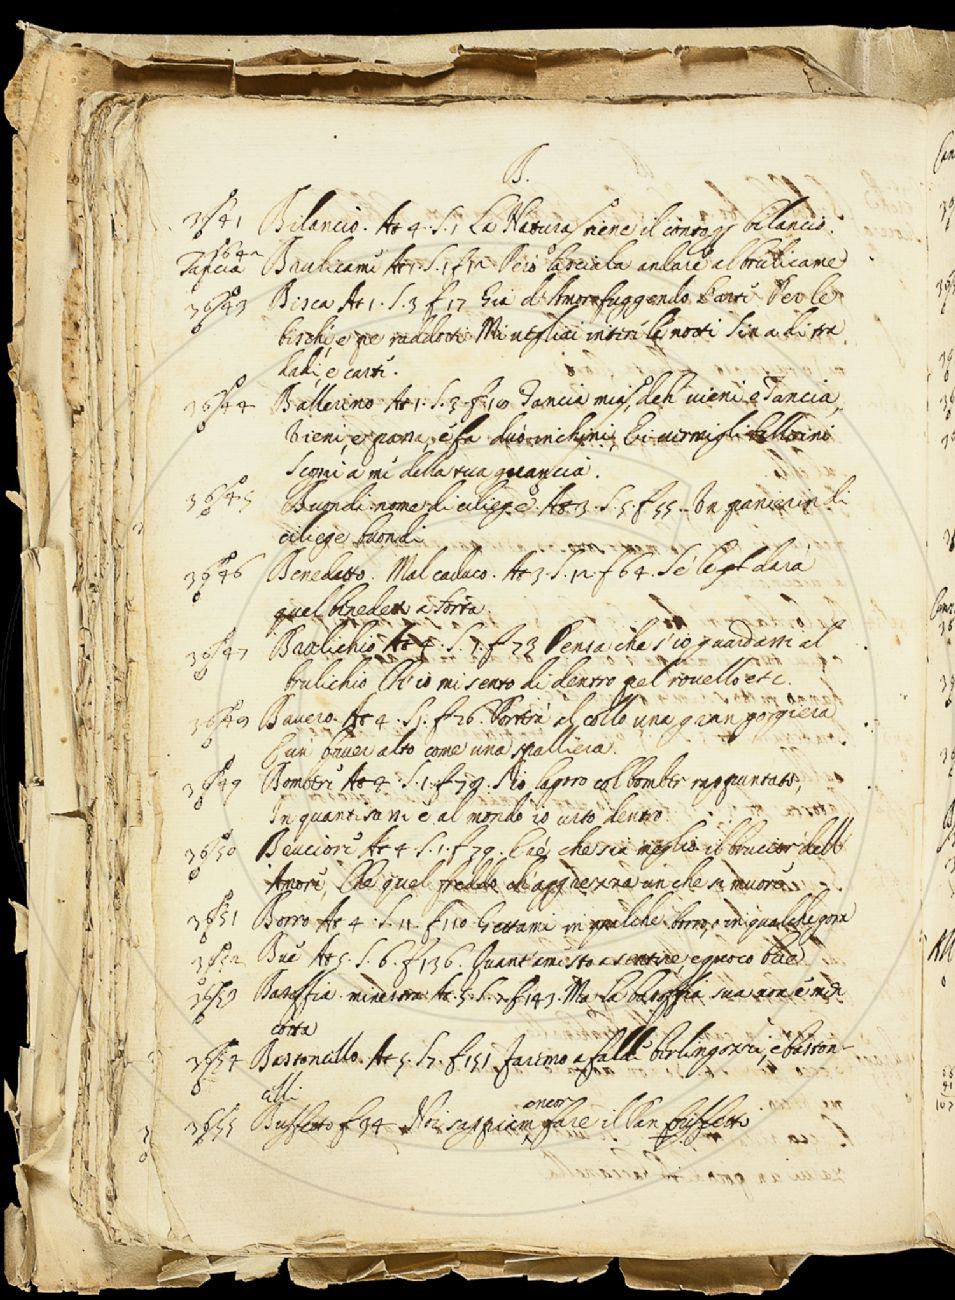 B.
Bilancio. At 4. S. 1 La Natura tiene il conto per bilancio.
Tancia Brulicame At S. 1 f Però lasciala andare al brulicame
3643 Bisca At 1. S. 3 f 17 Già d'Amor fuggendo l'arti Per le
bische, e pe' raddotti Mi vegliai intere le notti Sin a di tra
dadi, e carte.
3644 Ballerino At 1. S. 3. f Tancia mia, deh vieni è Tancia,
Vieni, e para, e fa duo inchini, E i vermigli ballerini
Scomi a me della tua guancia.
3645 Buondi nome di ciliege. At 3. S. 5 f 55. Un panierin di
ciliege buondi
3646 Benedetto. Mal caduco. At 3. S. 12. f 64. Se le gli darà
quel benedetto a sorta.
3647 Brulichio At 4. S. 1. f 73 Pensa che s'io guardassi al
brulichio Ch'io mi sento di dentro pel rovello etc.
Bavero. At 4. S. 1. f 76. Porterà al collo una gran gorgiera
E un baver alto come una spalliera.
3649 Bombere At 4. S. 1. f 79. S'io lavoro col bomber rappuntato,
In quanti sassi è al mondo io urto dentro
3650 Bruciore At 4 S. 1. f 79. E c'è che sia meglio il brucior dell'
Amore, Che quel freddo ch'aggrezza un che si muore
3651 Borro At 4. S. 11. f 110 Gettami in qualche borro, e in qualche gora
3652 Bue At 5. S. 6. f 136. Quant'amisto a sentire, e gnoco bue
3653 Basoffia minestra At 5. S. 7 f 143. Ma la basoffia sua non è men
cotta
3654 Bastoncello. At 5. S. 7. f 151 Faremo a falle berlingozzi, e baston-
celli
3655 Buffetto f 34 Noi sappiam ancor fare il Pan buffetto